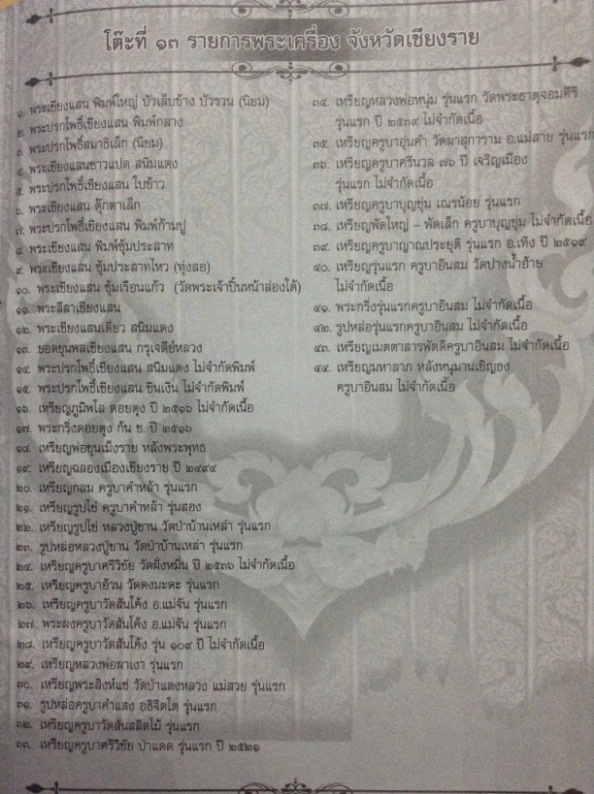 โต๊ะที่ ๑๓ รายการพระเครื่อง จังหวัดเชียงราย
๑. พระเชียงแสน พิมพ์ใหญ่ บัวเล็บช้าง บัวรวน (นิยม)
๒. พระปรกโพธิ์เชียงแสน พิมพ์กลาง
๓. พระปรกโพธิ์สมาธิเล็ก (นิยม)
๔. พระเชียงแสนซาวแปด สนิมแดง
๕. พระปรกโพธิ์เชียงแสน ใบข้าว
๖. พระเชียงแสน ตุ๊กตาเล็ก
๗. พระปรกโพธิ์เชียงแสน พิมพ์ก้ามปู
๘. พระเชียงแสน พิมพ์ซุ้มประสาท
๙. พระเชียงแสน ซุ้มประสาทไหว (ทุ่งลอ)
๑๐. พระเชียงแสน ซุ้มเรือนแก้ว (วัดพระเจ้าปิ้นหน้าล่องใต้)
๑๑. พระลีลาเชียงแสน
๑๒. พระเชียงแสนเดี่ยว สนิมแดง
๑๓. ยอดขุนพลเชียงแสน กรุเจดีย์หลวง
๑๔. พระปรกโพธิ์เชียงแสน สนิมแดง ไม่จำกัดพิมพ์
๑๕. พระปรกโพธิ์เชียงแสน ชินเงิน ไม่จำกัดพิมพ์
๑๖. เหรียญภูมิพโล ดอยตุง ปี ๒๕๑๖ ไม่จำกัดเนื้อ
๑๗. พระกริ่งดอยตุง ก้น ช. ปี ๒๕๑๖
๑๘. เหรียญพ่อขุนเม็งราย หลังพระพุทธ
๑๙. เหรียญฉลองเมืองเชียงราย ปี ๒๔๙๔
๒๐. เหรียญกลม ครูบาคำหล้า รุ่นแรก
๒๑. เหรียญรูปไข่ ครูบาคำหล้า รุ่นสอง
๒๒. เหรียญรูปไข่ หลวงปู่ขาน วัดป่าบ้านเหล่า รุ่นแรก
๒๓. รูปหล่อหลวงปู่ขาน วัดป่าบ้านเหล่า รุ่นแรก
๒๔. เหรียญครูบาศรีวิชัย วัดฝั่งหมิ่น ปี ๒๕๓๖ ไม่จำกัดเนื้อ
๒๕. เหรียญครูบาอ้วน วัดดงมะดะ รุ่นแรก
๒๖. เหรียญครูบาวัดสันโค้ง อ.แม่จัน รุ่นแรก
๒๗. พระผงครูบาวัดสันโค้ง อ.แม่จัน รุ่นแรก
๒๘. เหรียญครูบาวัดสันโค้ง รุ่น ๑๐๙ ปี ไม่จำกัดเนื้อ
๒๙. เหรียญหลวงพ่อผาเงา รุ่นแรก
๓๐. เหรียญพระสิงห์แซ่ วัดป่าแดงหลวง แม่สวย รุ่นแรก
๓๑. รูปหล่อครูบาคำแสง อธิจิตโต รุ่นแรก
๓๒. เหรียญครูบาวัดสันสลีดไม้ รุ่นแรก
๓๓. เหรียญครูบาศรีวิชัย ป่าแดด รุ่นแรก ปี ๒๕๒๑
๓๔. เหรียญหลวงพ่อหนุ่ม รุ่นแรก วัดพระธาตุจอมคีรี
รุ่นแรก ปี ๒๕๓๙ ไม่จำกัดเนื้อ
๓๕. เหรียญครูบาอุ่นคำ วัดผาสุการาม อ.แม่สาย รุ่นแรก
๓๖. เหรียญครูบาศรีนวล ๗๖ ปี เจริญเมือง
รุ่นแรก ไม่จำกัดเนื้อ
๓๗. เหรียญครูบาบุญชุ่ม เณรน้อย รุ่นแรก
๓๘. เหรียญพัดใหญ่ - พัดเล็ก ครูบาบุญชุ่ม ไม่จำกัดเนื้อ
๓๙. เหรียญครูบาญาณประยุติ รุ่นแรก อ.เทิง ปี ๒๕๑๙
๔๐. เหรียญรุ่นแรก ครูบาอินสม วัดปางน้ำฮ้าย
ไม่จำกัดเนื้อ
๔๑. พระกริ่งรุ่นแรกครูบาอินสม ไม่จำกัดเนื้อ
๔๒. รูปหล่อรุ่นแรกครูบาอินสม ไม่จำกัดเนื้อ
๔๓. เหรียญเมตตาสารพัดดีครูบาอินสม ไม่จำกัดเนื้อ
๔๔. เหรียญมหาลาภ หลังหนุมานเชิญธง
ครูบาอินสม ไม่จำกัดเนื้อ